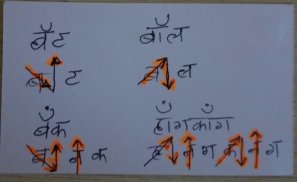 बॅट बॉल
ब ट ब ल
बँक हाँगकाँग
ब न क ह न ग क न ग